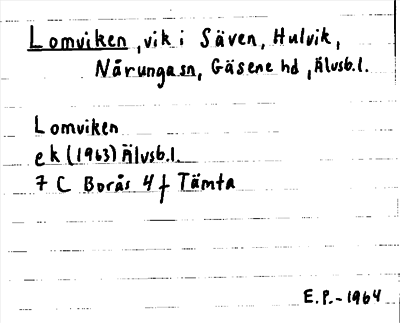 Lomviken, vik i Säven, Hulvik,
Nårungasn, Gäsene hd, Älvsb.l.
Lomviken
ek (1963) Älvsb.l.
7 C Borås 4 f Tämta
E.P.-1964